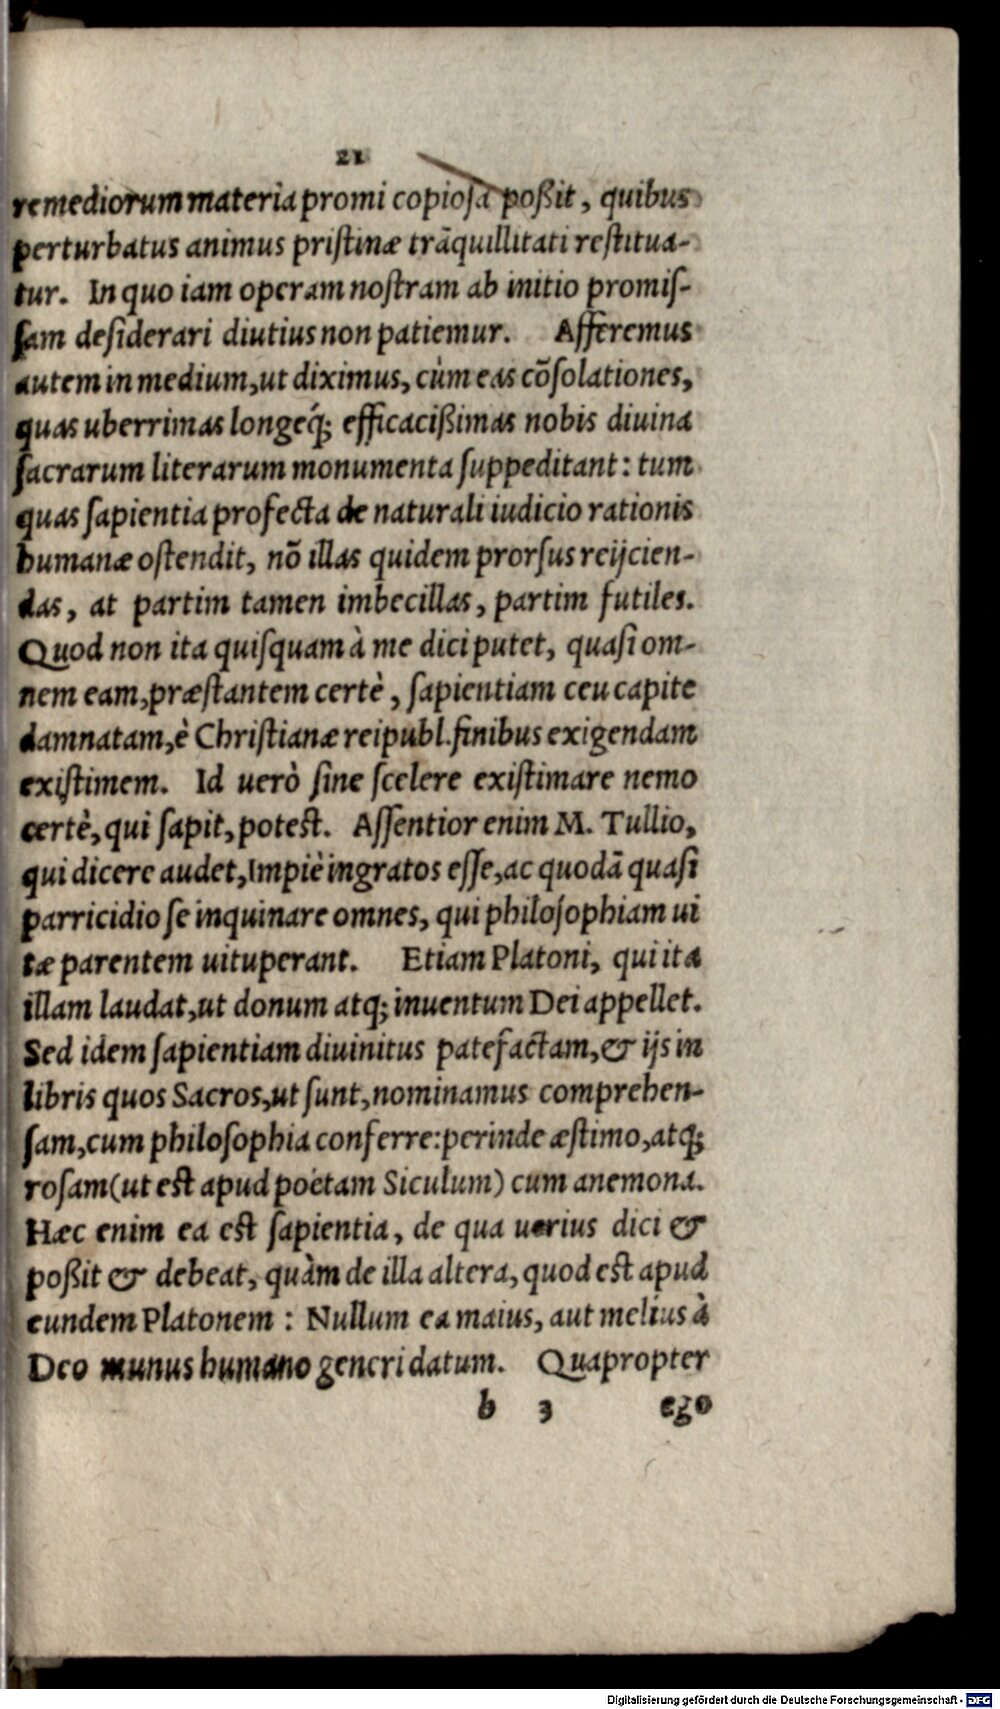 21
remediorum materia promi copiosa poßit, quibus
perturbatus animus pristinæ trãquillitati restitua-
tur. In quo iam operam nostram ab initio promiſ-
ſam deſiderari diutius non patiemur. Afferemus
autem in medium, ut diximus, cùm eas cõſolationes,
quas uberrimas longeq́; efficacißimas nobis diuina
ſacrarum literarum monumenta ſuppeditant: tum
quas ſapientia profecta de naturali iudicio rationis
humanæ oſtendit, nõ illas quidem prorſus reijcien-
das, at partim tamen imbecillas, partim futiles.
Quod non ita quiſquam à me dici putet, quaſi om-
nem eam, præſtantem certè, ſapientiam ceu capite
damnatam, è Chriſtianæ reipubl. finibus exigendam
exiſtimem. Id uerò ſine ſcelere exiſtimare nemo
certè, qui ſapit, poteſt. Aſſentior enim M. Tullio,
qui dicere audet, Impiè ingratos eſſe, ac quodã quaſi
parricidio ſe inquinare omnes, qui philoſophiam ui
tæ parentem uituperant. Etiam Platoni, qui ita
illam laudat, ut donum atq; inuentum Dei appellet.
Sed idem ſapientiam diuinitus patefactam, & ijs in
libris quos Sacros, ut ſunt, nominamus comprehen-
ſam, cum philoſophia conferre: perinde æſtimo, atq;
roſam (ut eſt apud poëtam Siculum) cum anemona.
Hæc enim ea eſt ſapientia, de qua uerius dici &
poßit & debeat, quàm de illa altera, quod eſt apud
eundem Platonem: Nullum ea maius, aut melius à
Deo munus humano generi datum. Quapropter
b 3 ego
Digitalisierung gefördert durch die Deutsche Forschungsgemeinschaft - DFG